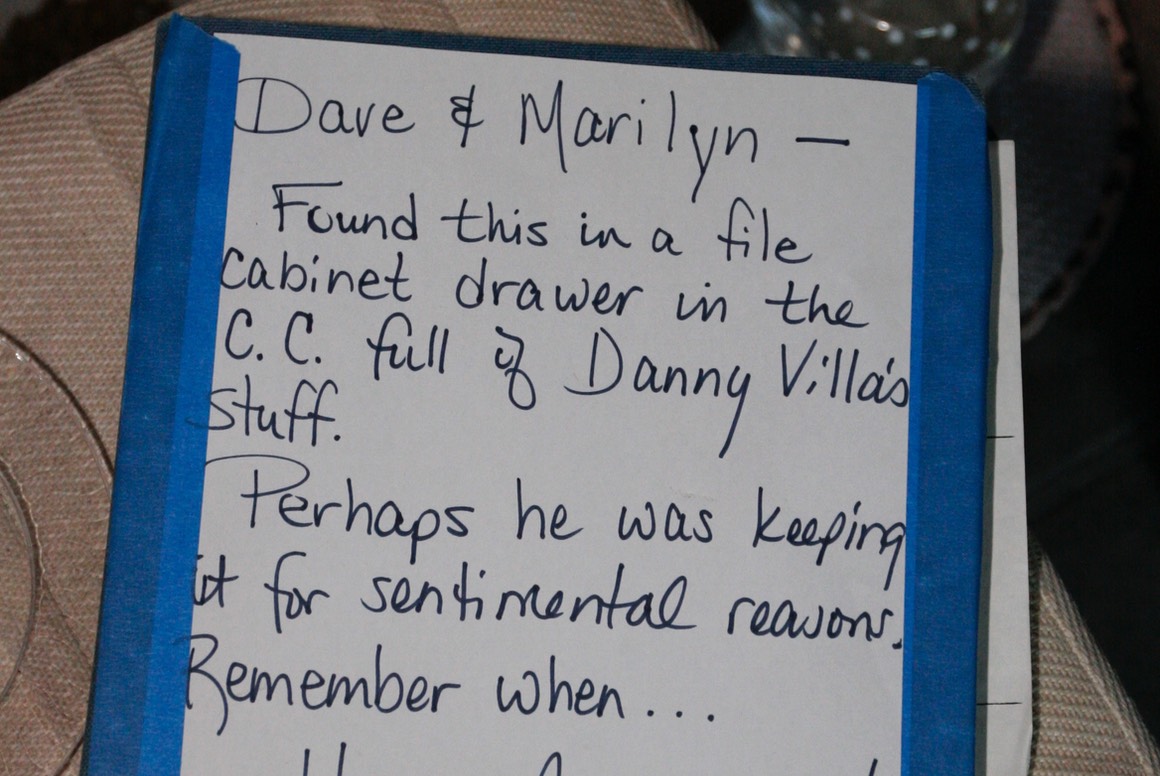 Dave & Marilyn —
Found this in a file
cabinet drawer in the
C.C. full of Danny Villa's
stuff.
Perhaps he was keeping
it for sentimental reasons.
Remember when...